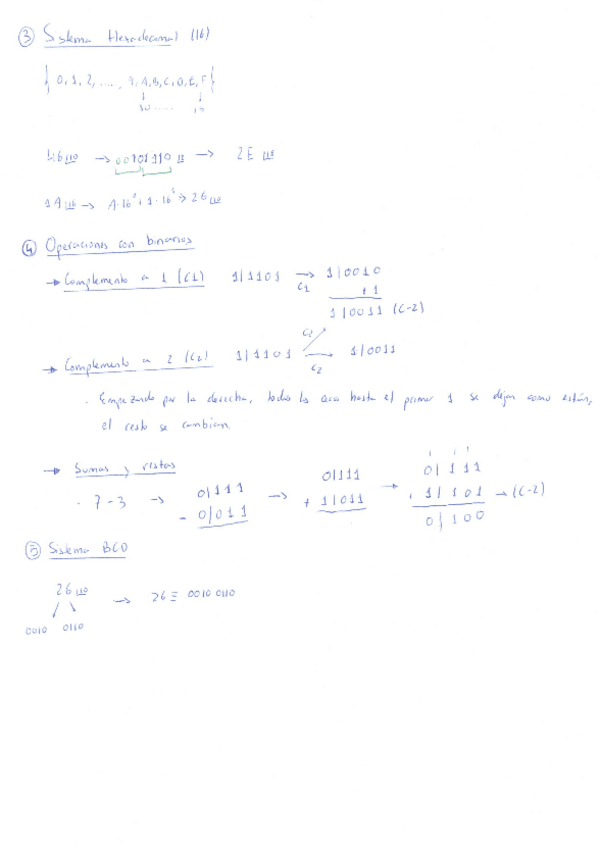 ③ Sistema Hexadecimal (16)
{0, 1, 2, ...., 9, A, B, C, D, E, F}
10 .....
46₍₁₀ → 00101110₍₂ → 2E₍₁₆
1A₍₁₆ → A·16⁰ + 1·16¹ → 26₍₁₀
④ Operaciones con binarios
→ Complemento a 1 (C1) 1|1101 → 1|0010
C1 + 1
1|0011 (C-2)
C2
→ Complemento a 2 (C2) 1|1101 → 1|0011
C2
· Empezando por la derecha, todos los hasta el primer 1 se dejan como están,
el resto se cambian.
→ Sumas y restas
· 7 - 3 → 0|111 → 0|111 → 0|111
- 0|011 + 1|011 + 1|101 → (C-2)
0|100
⑤ Sistema BCD
26₍₁₀ → 26 ≡ 0010 0110
0010 0110